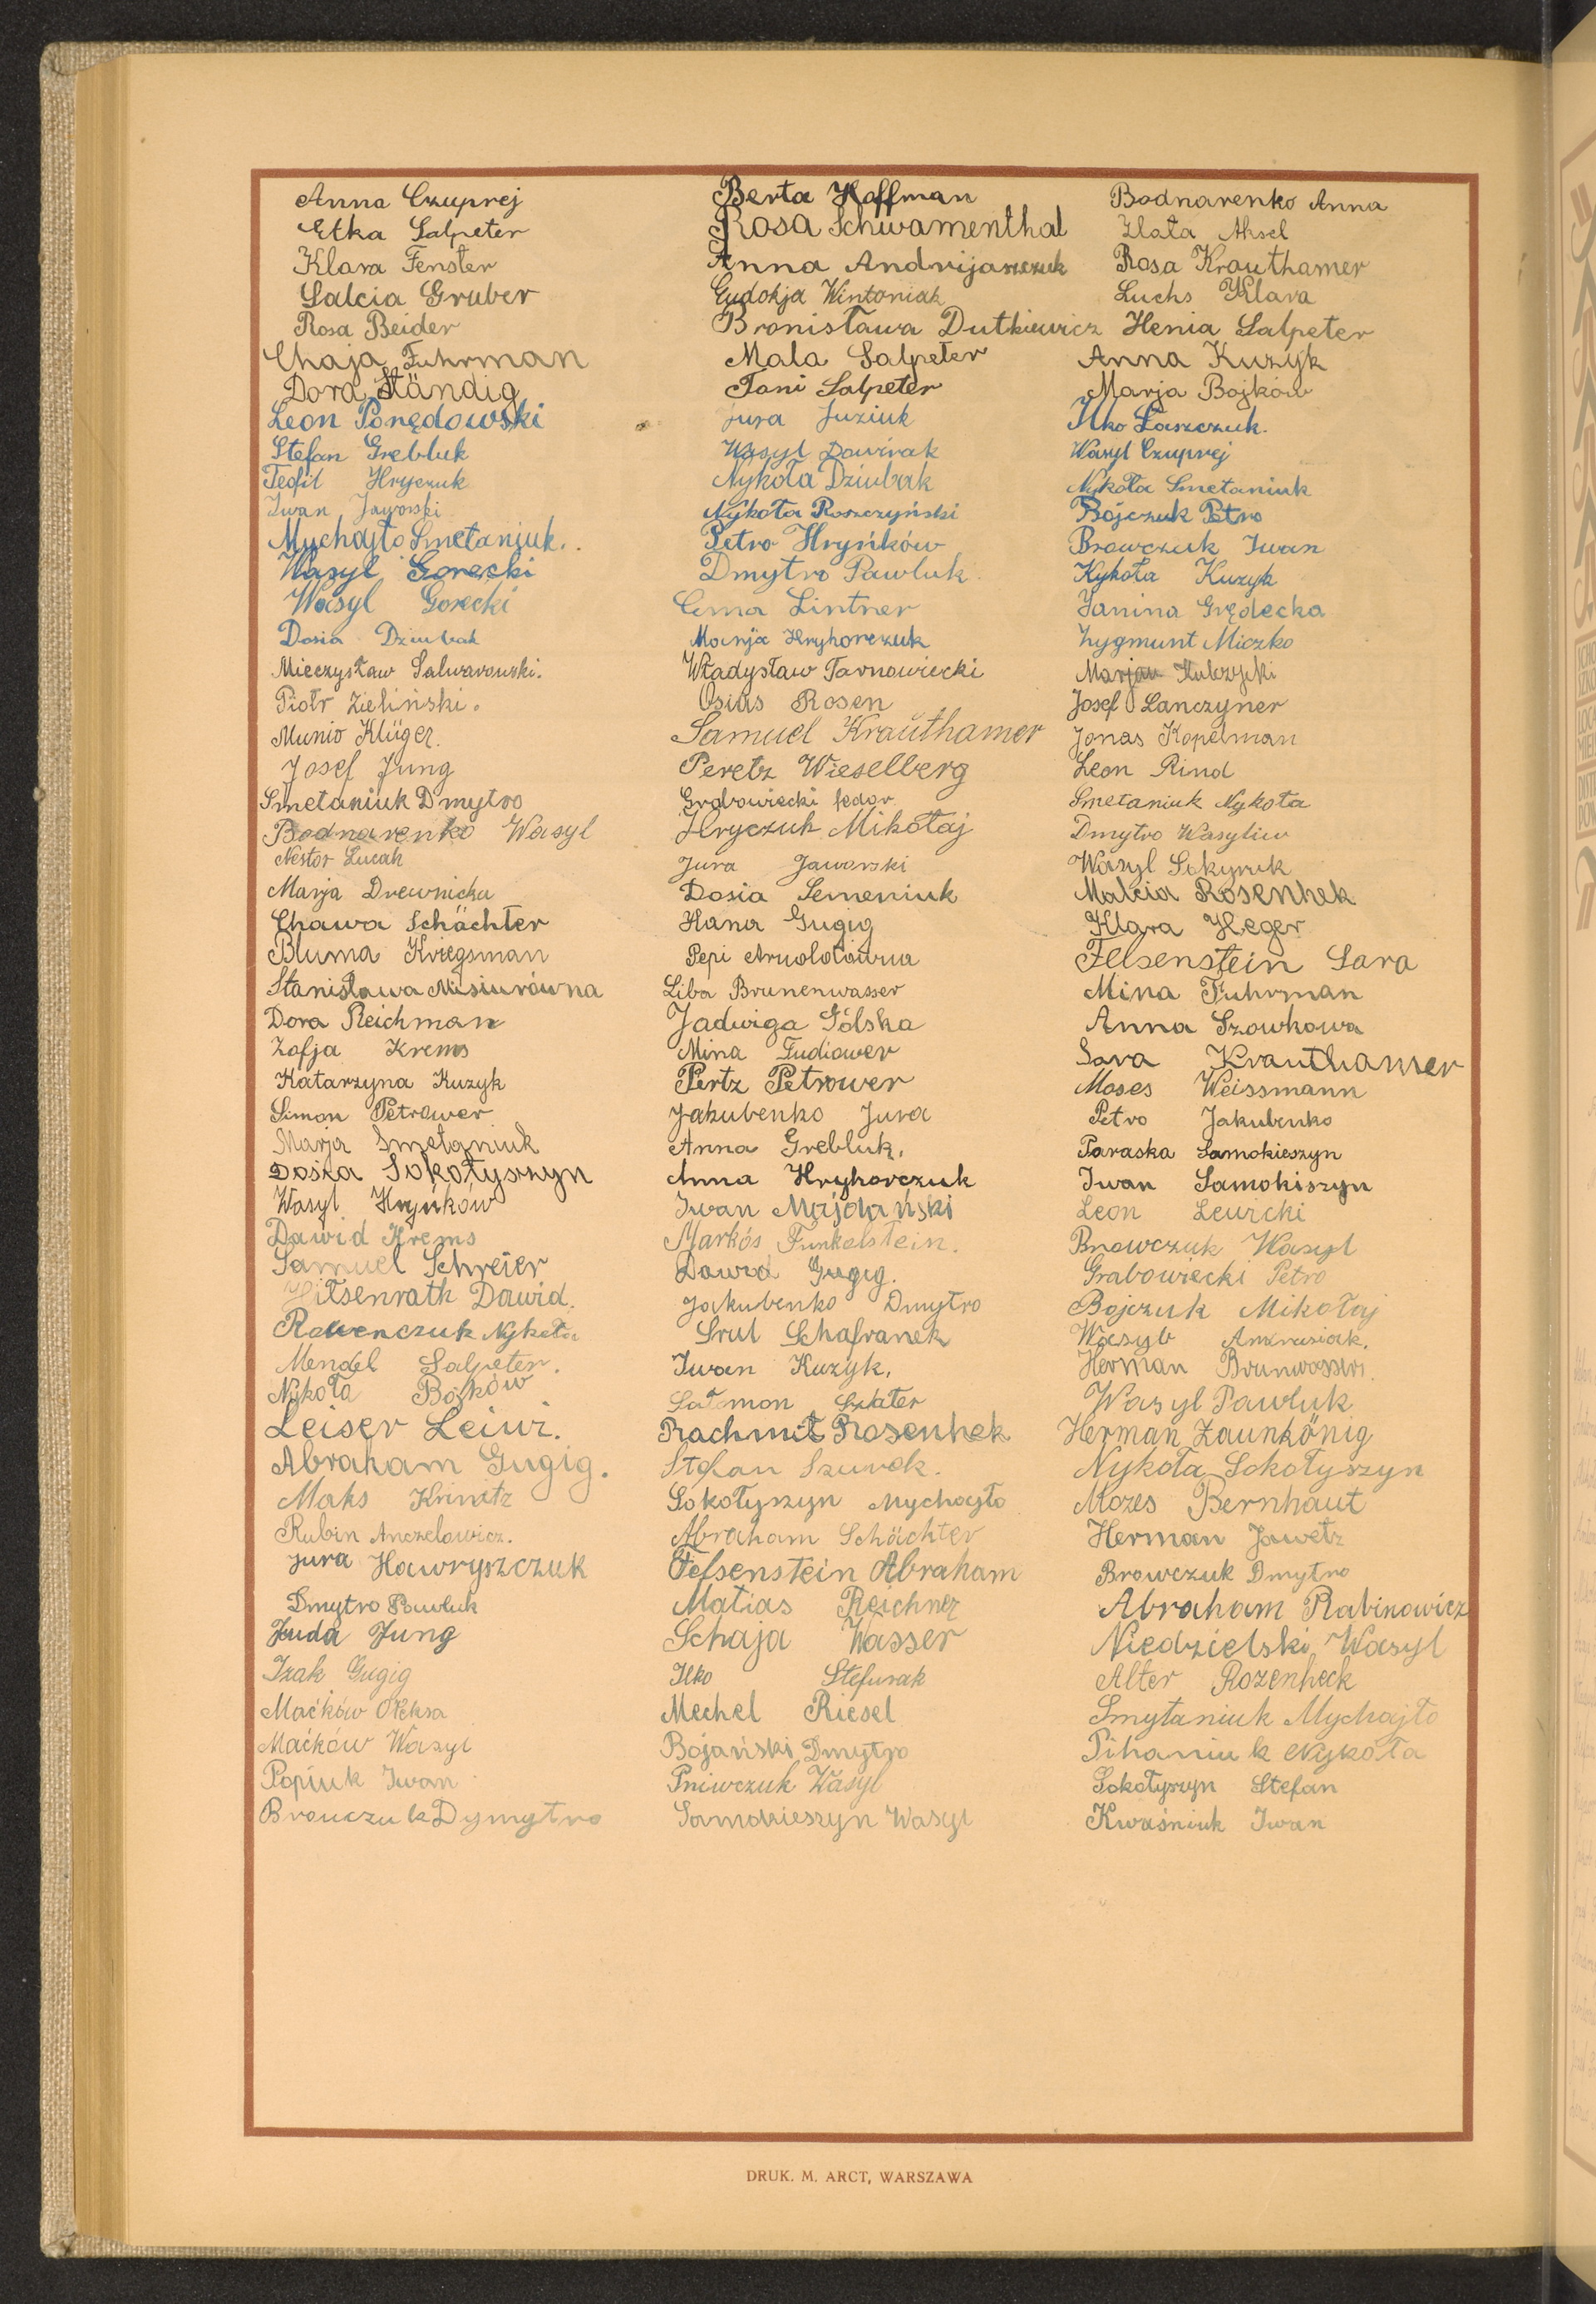 Anna Czuprej
Etka Salpeter
Klara Fenster
Salcia Gruber
Rosa Beider
Chaja Fuhrman
Dora Ständig
Leon Ponędowski
Stefan Grebluk
Teofil Hryczuk
Iwan Jaworski
Mychajło Smetaniuk.
Wasyl Gorecki
Wasyl Gorecki
Dosia Dziubak
Mieczysław Salwarowski.
Piotr Zieliński.
Munio Klüger.
Josef Jung
Smetaniuk Dmytro
Bodnarenko Wasyl
Nestor Łucak
Marja Drewnicka
Chawa Schächter
Bluma Kriegsman
Stanisława Misiurówna
Dora Reichman
Zofja Krems
Katarzyna Kuzyk
Simon Petrower
Marja Smetaniuk
Dosia Sokołyszyn
Wasyl Hryńków
Dawid Krems
Samuel Schreier
Hitsenrath Dawid.
Rewenczuk Nykoła
Mendel Salpeter.
Nykoła Bojków
Leiser Leiwi.
Abraham Gugig.
Maks Krinitz
Rubin Anczelowicz.
Jura Hawryszczuk
Dmytro Pawluk
Juda Jung
Izak Gugig
Maćków Ołeksa
Maćków Wasyl
Popiuk Iwan
Browczuk Dymytro
Berta Hoffman
Rosa Schwamenthal
Anna Andrijaszczuk
Eudokja Wintoniak
Bronisława Dutkiewicz
Mala Salpeter
Toni Salpeter
Jura Juziuk
Wasyl
Nykoła Dziubak
Nykoła Roszczyński
Petro Hryńków
Dmytro Pawluk.
Cma Lintner
Marja Hryhorczuk
Władysław Tarnowiecki
Osias Rosen
Samuel Krauthamer
Peretz Wieselberg
Grabowiecki Fedor
Hryczuk Mikołaj
Jura Jaworski
Dosia Semeniuk
Hana Gugig
Pepi Arnoldówna
Liba Brunenwasser
Jadwiga Gólska
Mina Fudiower
Pertz Petrower
Jakubenko Jura
Anna Grebluk.
Anna Hryhorczuk
Iwan Majdański
Markós Funkelstein.
Dawid Gugig.
Jakubenko Dmytro
Srul Schafranek
Iwan Kuzyk.
Sałomon Szkater
Rachmil Rosenhek
Stefan Szurek.
Sokołyszyn Mychajło
Abraham Schächter
Felsenstein Abraham
Matias Reichner
Schaja Wasser
Ilko Stefurak
Mechel Riesel
Bojański Dmytro
Pniwczuk Wasyl
Samokieszyn Wasyl
Bodnarenko Anna
Zlata Aksel
Rosa Krauthamer
Luchs Klara
Henia Salpeter
Anna Kuzyk
Marja Bojków
Ilko Łaszczuk.
Wasyl Czuprej
Nykoła Smetaniuk
Bojczuk Petro
Browczuk Iwan
Nykoła Kuzyk
Janina Grędecka
Zygmunt Miczko
Marjan Kulczycki
Josef Lanczyner
Jonas Kopelman
Leon Rind
Smetaniuk Nykoła
Dmytro Wasyliw
Wasyl Sokyruk
Malcia Rosenhek
Klara Heger
Felsenstein Sara
Mina Fuhrman
Anna Szowkowa
Sara Krauthamer
Moses Weissmann
Petro Jakubenko
Paraska Samokieszyn
Iwan Samokiszyn
Leon Lewicki
Browczuk Wasyl
Grabowiecki Petro
Bojczuk Mikołaj
Wasyl Andrusiak.
Herman Brunwasser.
Wasyl Pawluk
Herman Zaunkönig
Nykoła Sokołyszyn
Mozes Bernhaut
Herman Jawetz
Browczuk Dmytro
Abraham Rabinowicz
Niedzielski Wasyl
Alter Rozenheck
Smytaniuk Mychajło
Pihaniuk Nykoła
Sokołyszyn Stefan
Kwaśniuk Iwan
DRUK. M. ARCT, WARSZAWA